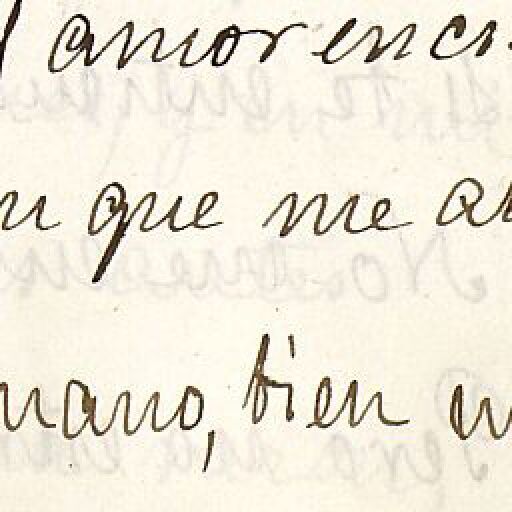 l amor enci
n que me au
mano, bien u